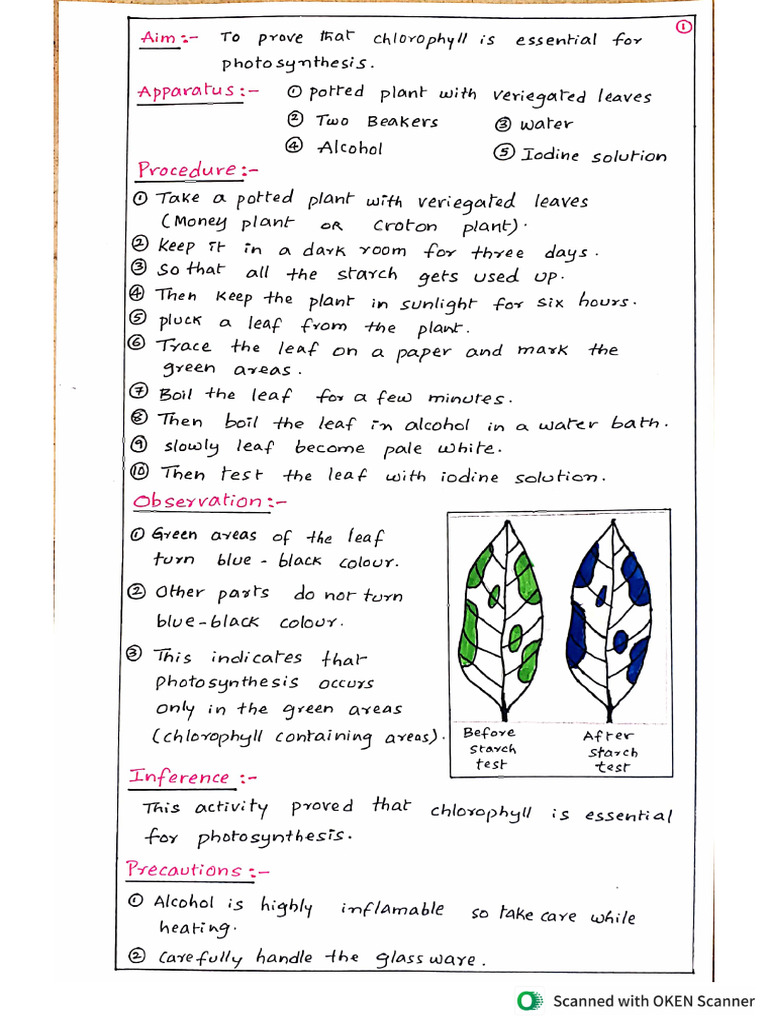 ①
Aim:- To prove that chlorophyll is essential for
photosynthesis.
Apparatus:- ① potted plant with veriegated leaves
② Two Beakers ③ water
④ Alcohol ⑤ Iodine solution
Procedure:-
① Take a potted plant with veriegated leaves
(Money plant OR croton plant).
② Keep it in a dark room for three days.
③ So that all the starch gets used up.
④ Then keep the plant in sunlight for six hours.
⑤ pluck a leaf from the plant.
⑥ Trace the leaf on a paper and mark the
green areas.
⑦ Boil the leaf for a few minutes.
⑧ Then boil the leaf in alcohol in a water bath.
⑨ slowly leaf become pale white.
⑩ Then test the leaf with iodine solution.
Observation:-
① Green areas of the leaf
turn blue-black colour.
② Other parts do not turn
blue-black colour.
③ This indicates that
photosynthesis occurs
only in the green areas
(chlorophyll containing areas).
Before
starch
test
After
starch
test
Inference:-
This activity proved that chlorophyll is essential
for photosynthesis.
Precautions:-
① Alcohol is highly inflamable so take care while
heating.
② Carefully handle the glass ware.
Scanned with OKEN Scanner